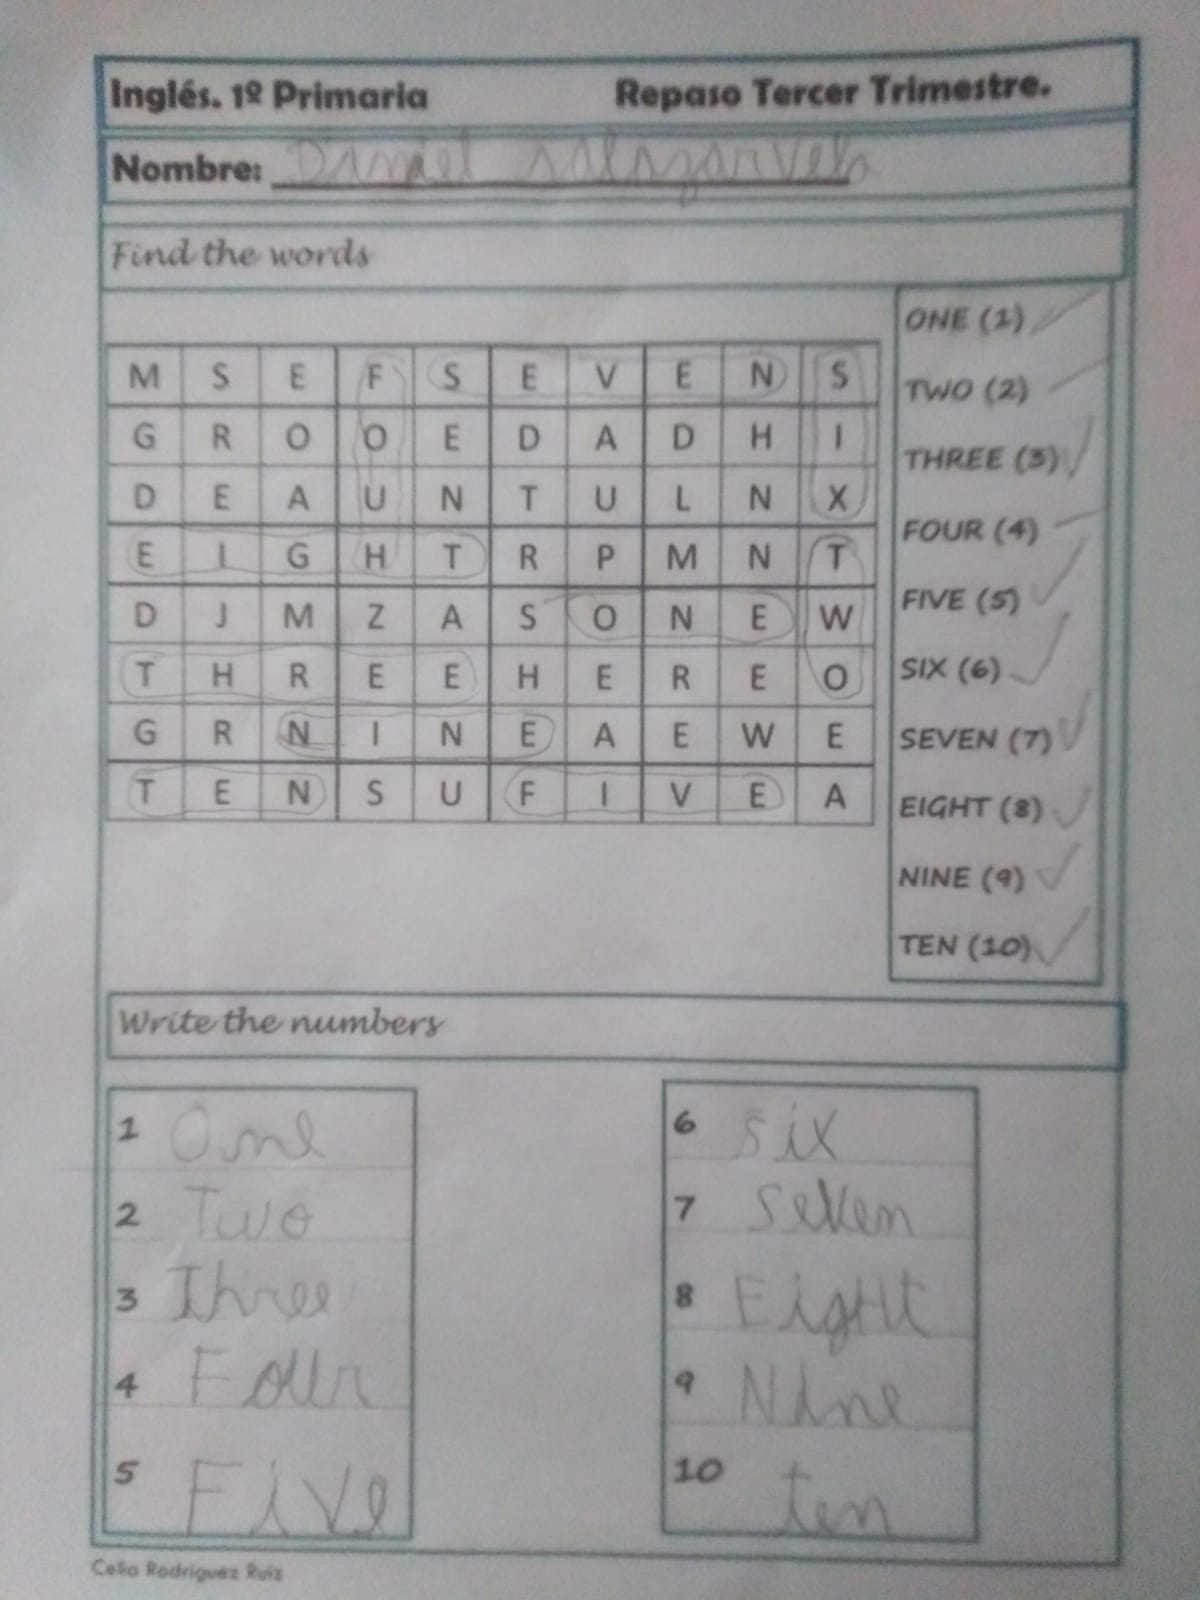 Inglés. 1º Primaria Repaso Tercer Trimestre.
Nombre: Daniel salazar vela
Find the words
M S E F S E V E N S
G R O O E D A D H I
D E A U N T U L N X
E I G H T R P M N T
D J M Z A S O N E W
T H R E E H E R E O
G R N I N E A E W E
T E N S U F I V E A
ONE (1)
TWO (2)
THREE (3)
FOUR (4)
FIVE (5)
SIX (6)
SEVEN (7)
EIGHT (8)
NINE (9)
TEN (10)
Write the numbers
1 One
2 Two
3 Three
4 Four
5 Five
6 six
7 seven
8 Eight
9 Nine
10 ten
Celia Rodríguez Ruiz